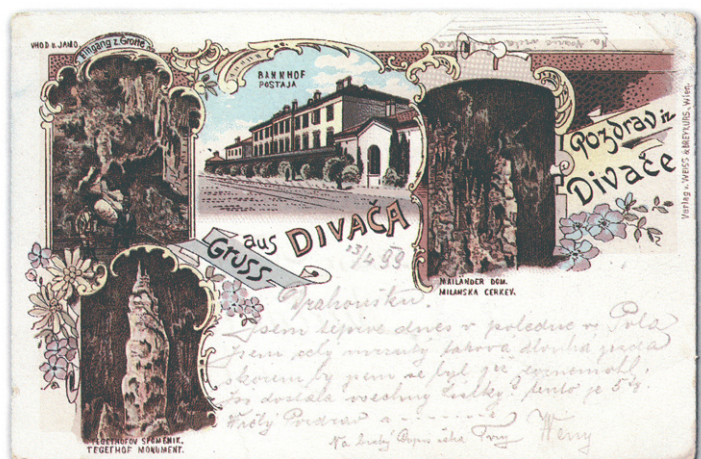 VHOD v JAMO.
Eingang z. Grotte
BAHNHOF
POSTAJA
Pozdrav iz
Divače
Verlag v. WEISS & DREYKURS, Wien.
Gruss
aus DIVAČA
23/4 99
MAILÄNDER DOM.
MILANSKA CERKEV.
TEGETHOFOV SPOMENIK.
TEGETHOF MONUMENT.
Drahoušku.
Jsem teprve dnes v poledne v Pola
jsem celý mrzutý taková dlouhá
skorem by jsem se byl
dostala všechny lístky? tento je 5tý.
Pozdrav a
Na brzký